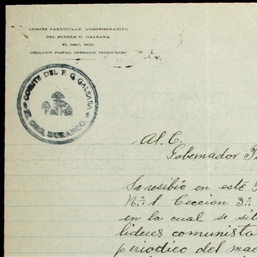 COMITE PARTICULAR ADMINISTRATIVO
DEL PUEBLO G. GALEANA.
EL ORO, DGO.
COMITE DEL P. G. GALEANA
EL ORO, DURANGO.
Al C.
Gobernador
Sa resibio en este
Nº 1. Ceccion 3ª
en la cual se sit
lideres comunista
periodico del mae